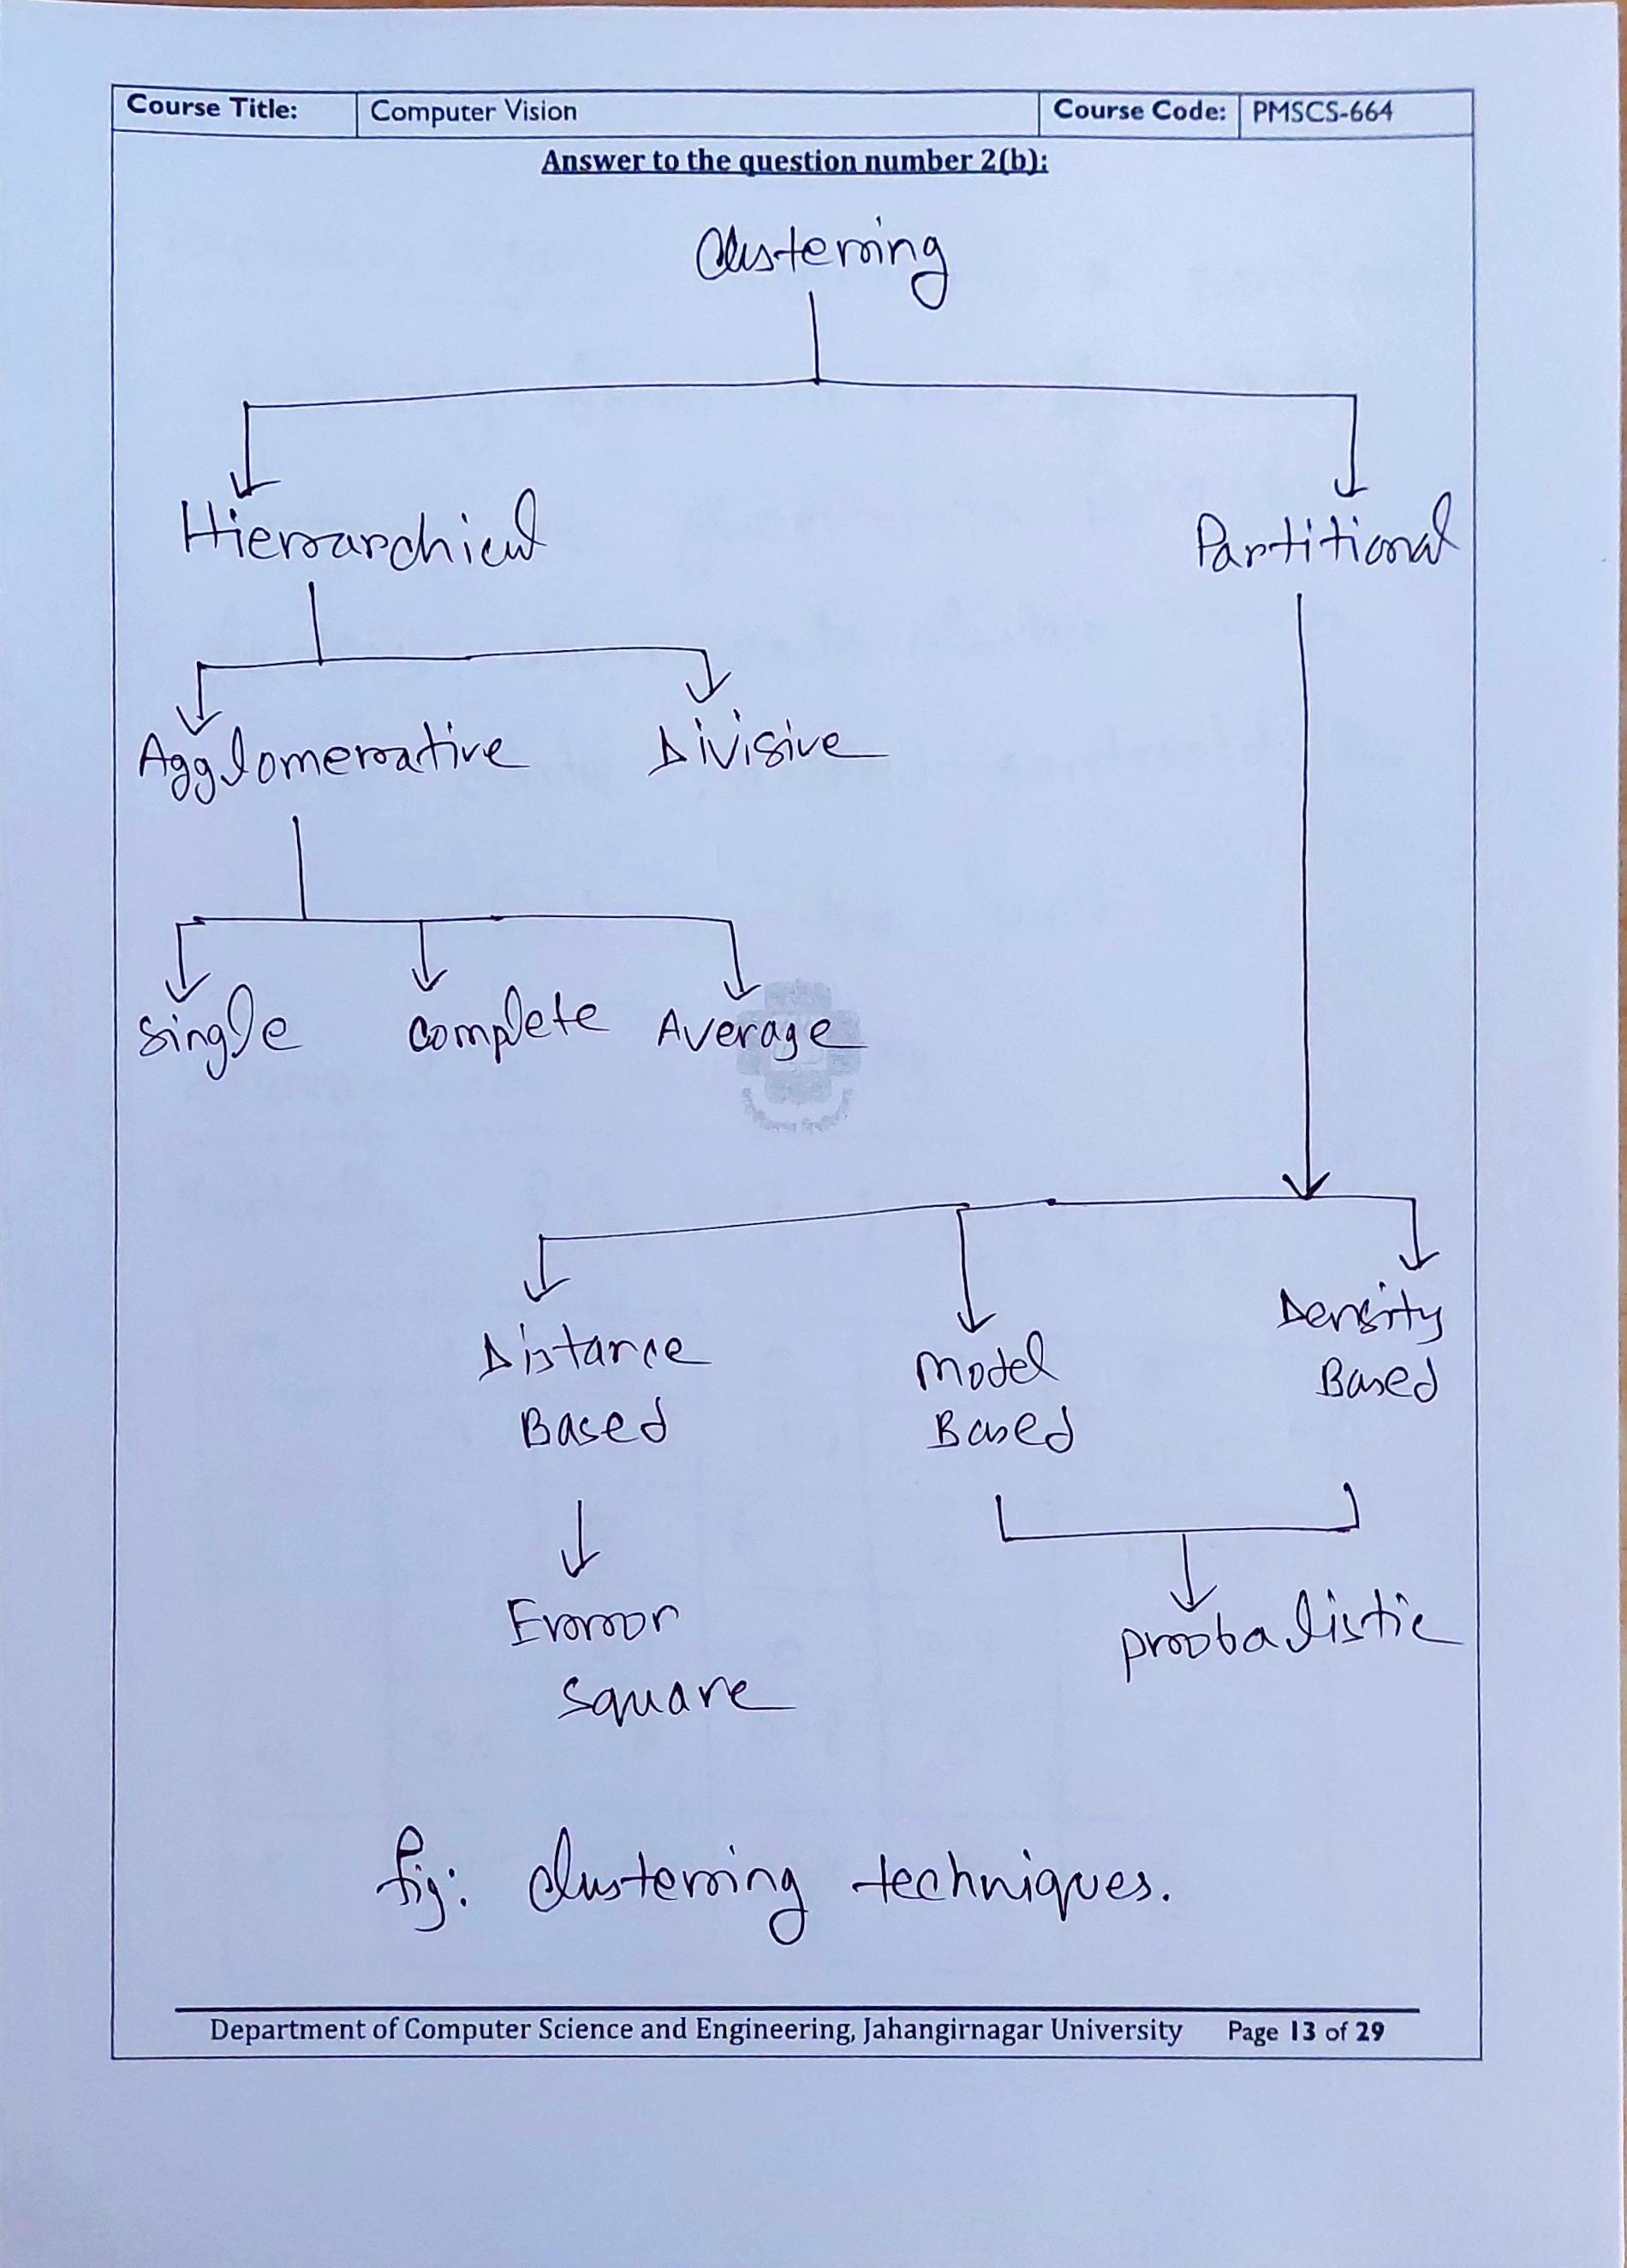 Course Title: Computer Vision Course Code: PMSCS-664
Answer to the question number 2(b):
Clustering
Hierarchical Partitional
Agglomerative Divisive
Single Complete Average
Distance Based
Model Based
Density Based
Error
Square
probalistic
fig: Clustering techniques.
Department of Computer Science and Engineering, Jahangirnagar University Page 13 of 29